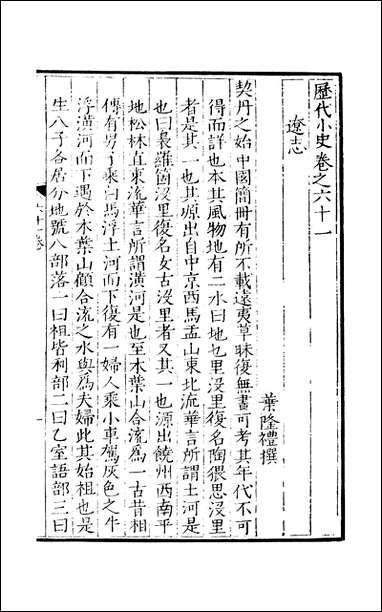 歷代小史卷之六十一
遼志
葉隆禮撰
契丹之始中國簡冊有所不載遠夷草昧復無畫可考其年代不可
得而詳也本其風物地有二水曰地乜里沒里復名陶猥思沒里
者是其一也其源出自中京西馬盂山東北流華言所謂土河是
也曰裊羅箇沒里復名女古沒里者又其一也源出饒州西南平
地松林直東流華言所謂潢河是也至木葉山合流爲一古昔相
傳有男子乘白馬浮土河而下復有一婦人乘小車駕灰色之牛
浮潢河而下遇於木葉山顧合流之水與爲夫婦此其始祖也是
生八子各居分地號八部落一曰祖皆利部二曰乙室語部三曰